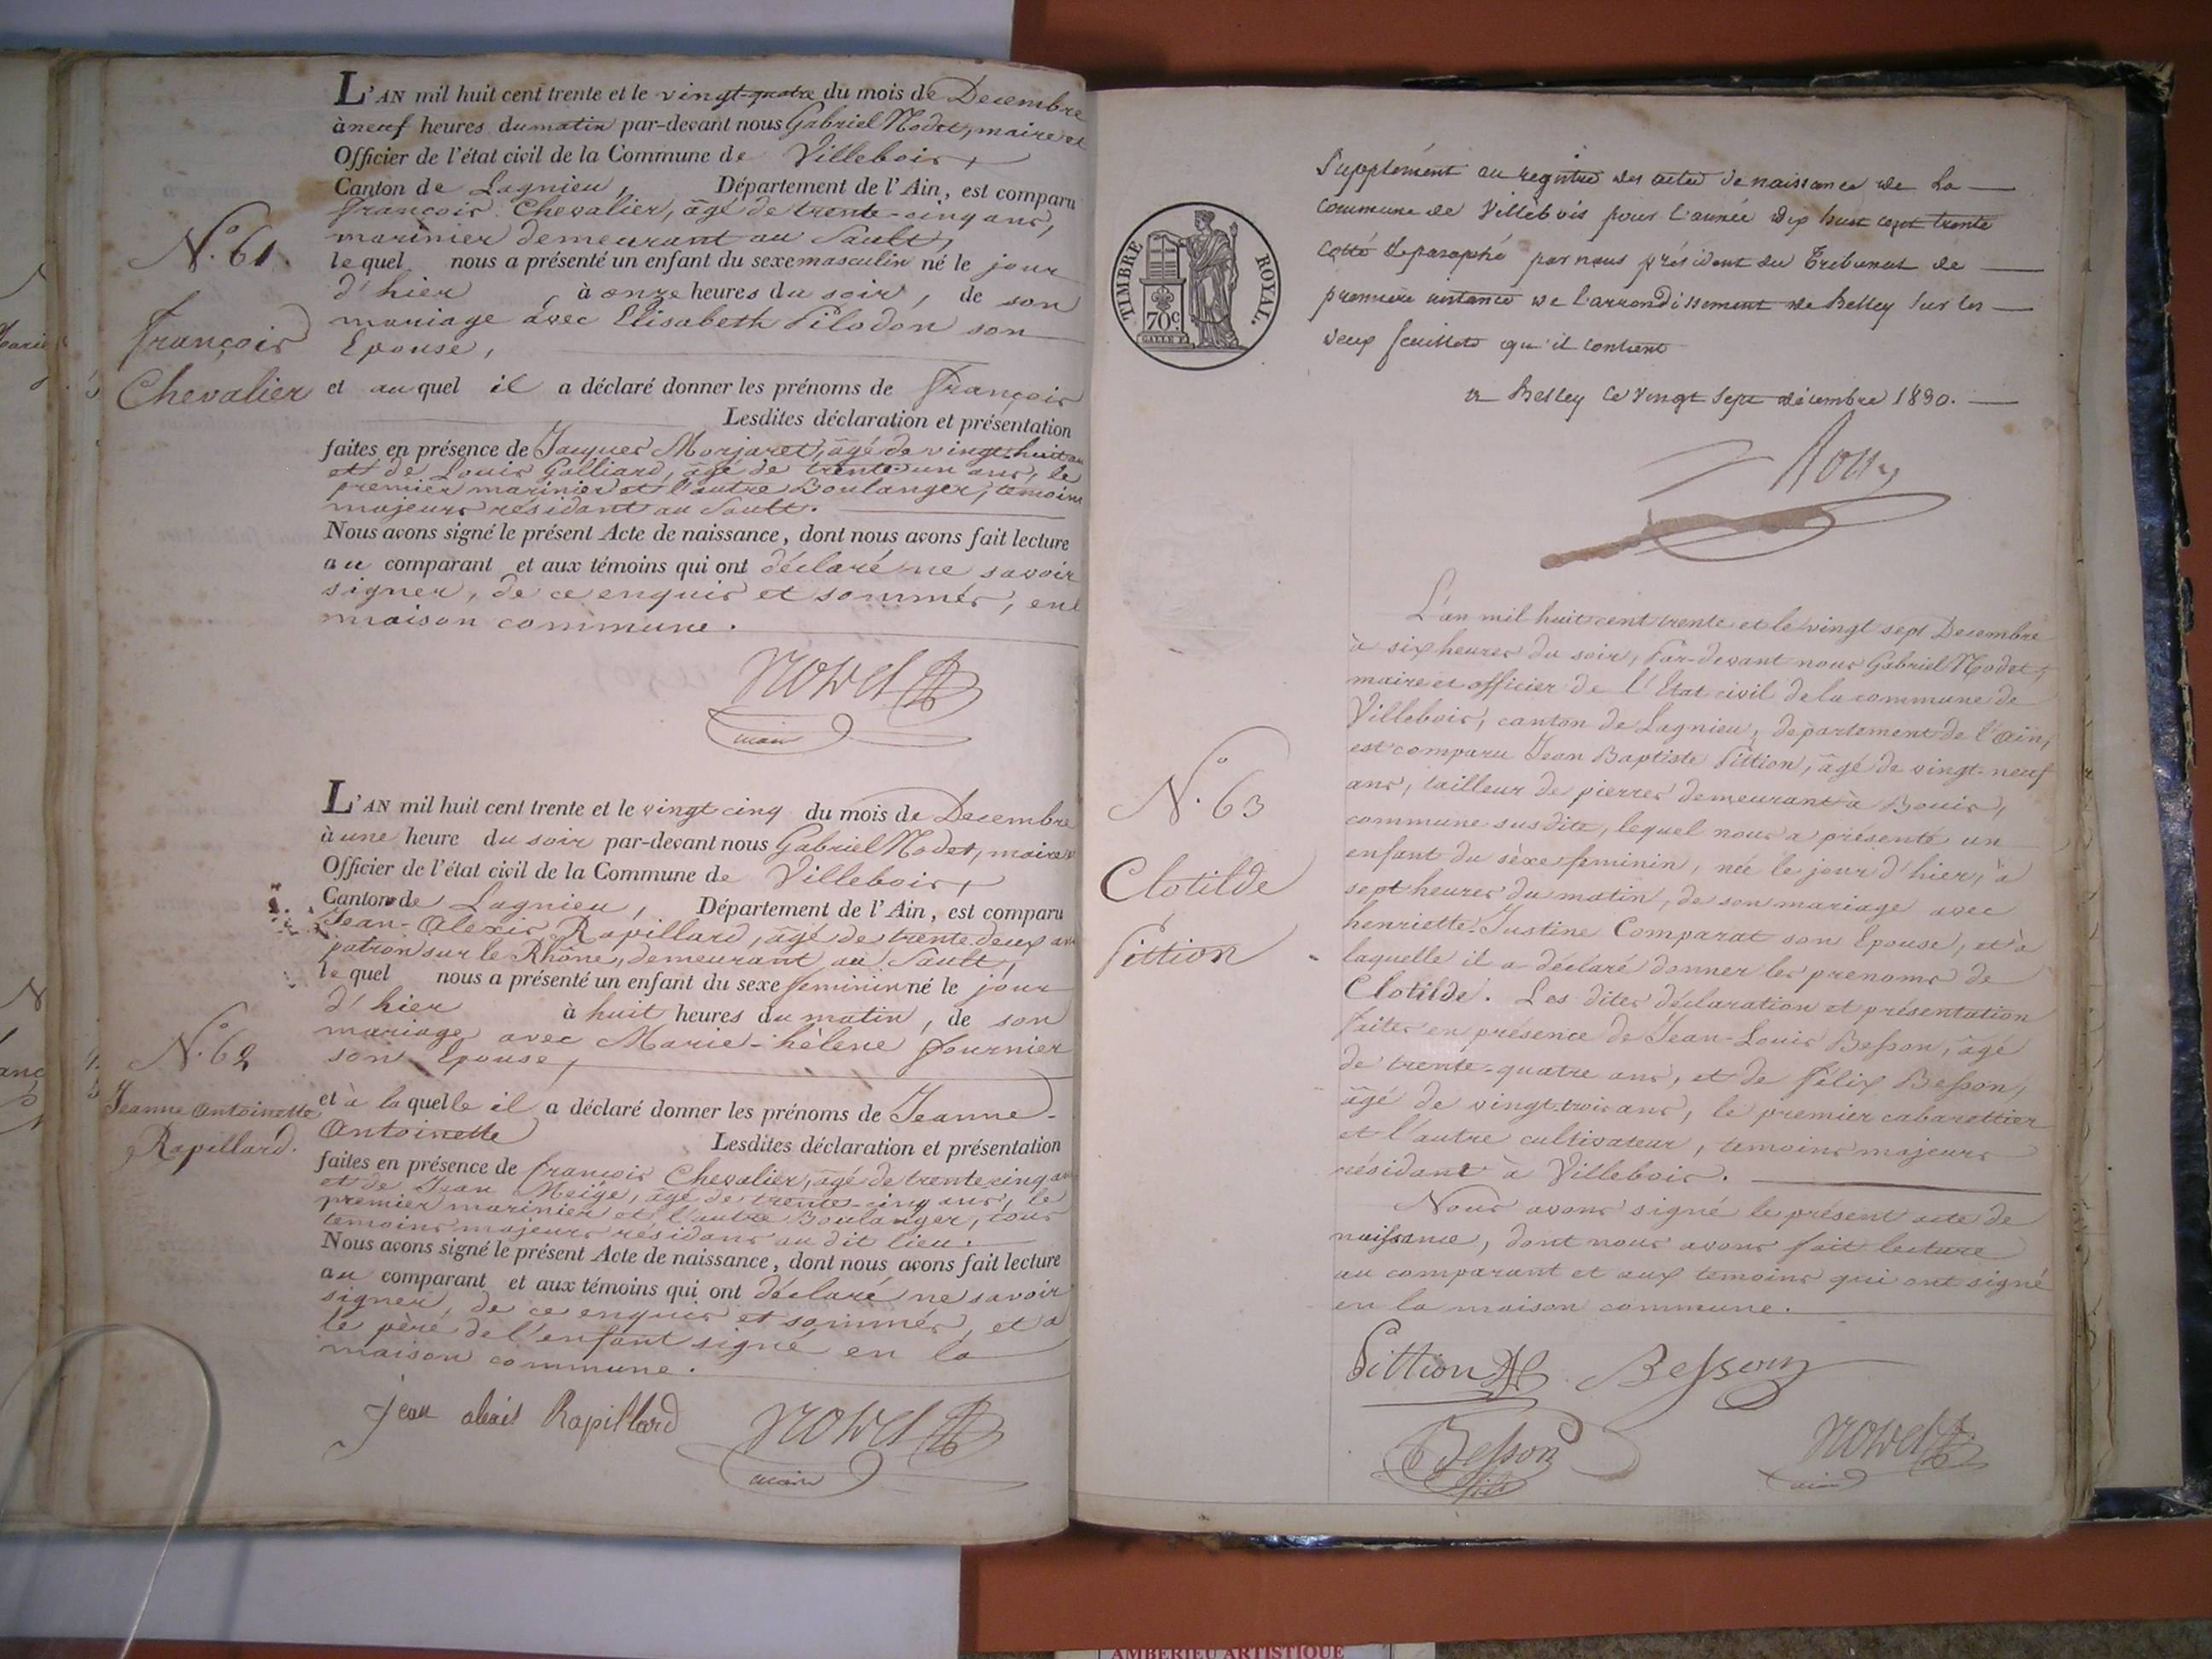 L'AN mil huit cent trente et le vingt-quatre du mois de Decembre
à neuf heures du matin par-devant nous Gabriel Nodet, maire et
Officier de l'état civil de la Commune de Villebois,
Canton de Lagnieu, Département de l'Ain, est comparu
François Chevalier, âgé de trente-cinq ans,
marinier demeurant au Sault,
N.o 61.
le quel nous a présenté un enfant du sexe masculin né le jour
d'hier, à onze heures du soir, de son
mariage avec Elisabeth Pilodon son
Epouse,
François
Chevalier
et au quel il a déclaré donner les prénoms de François
Lesdites déclaration et présentation
faites en présence de Jacques Morjaret, âgé de vingt-huit ans
et de Louis Galliard, âgé de trente-un ans, le
premier marinier et l'autre Boulanger, temoins
majeurs résidant au Sault.
Nous avons signé le présent Acte de naissance, dont nous avons fait lecture
au comparant et aux témoins qui ont déclaré ne savoir
signer, de ce enquis et sommés, en l
maison commune.
Nodet
maire
L'AN mil huit cent trente et le vingt cinq du mois de Decembre
à une heure du soir par-devant nous Gabriel Nodet, maire et
Officier de l'état civil de la Commune de Villebois,
Canton de Lagnieu, Département de l'Ain, est comparu
Jean-Alexis Rapillard, âgé de trente-deux ans
patron sur le Rhône, demeurant au Sault,
le quel nous a présenté un enfant du sexe feminin né le jour
d'hier à huit heures du matin, de son
mariage avec Marie-hélène Fournier
son Epouse,
N.o 62
Jeanne Antoinette
Rapillard.
et à la quelle il a déclaré donner les prénoms de Jeanne-
Antoinette
Lesdites déclaration et présentation
faites en présence de François Chevalier, âgé de trente cinq ans
et de Jean Meige, âgé de trente-cinq ans, le
premier marinier et l'autre Boulanger, tous
temoins majeurs résidans au dit lieu.
Nous avons signé le présent Acte de naissance, dont nous avons fait lecture
au comparant et aux témoins qui ont déclaré ne savoir
signer, de ce enquis et sommés, et a
le père de l'enfant signé en la
maison commune.
jean alexis Rapillard Nodet
maire
TIMBRE ROYAL.
70c
Supplément au registre des actes de naissance de la
commune de Villebois pour l'année dix huit cent trente
cotté & paraphé par nous président du Tribunal de
première instance de l'arrondissement de Belley sur les
deux feuillets qu'il contient
a Belley le vingt sept décembre 1830.
L'an mil huit cent trente et le vingt sept Decembre
à six heures du soir, Par-devant nous Gabriel Nodet,
maire et officier de l'Etat civil de la commune de
Villebois, canton de Lagnieu, département de l'Ain,
est comparu Jean Baptiste Pittion, âgé de vingt-neuf
ans, tailleur de pierres demeurant à Bouis,
commune susdite, lequel nous a présenté un
enfant du sèxe feminin, née le jour d'hier, à
sept heures du matin, de son mariage avec
henriette-Justine Comparat son Epouse, et à
laquelle il a déclaré donner les prenoms de
Clotilde. Les dites déclaration et présentation
faites en présence de Jean-Louis Besson, âgé
de trente-quatre ans, et de Félix Besson,
âgé de vingt-trois ans, le premier cabarettier
et l'autre cultivateur, temoins majeurs
résidant à Villebois.
N.o 63
Clotilde
Pittion
Nous avons signé le présent acte de
naissance, dont nous avons fait lecture
au comparant et aux temoins qui ont signé
en la maison commune.
Pittion Besson
Besson Nodet
AMBERIEU ARTISTIQUE